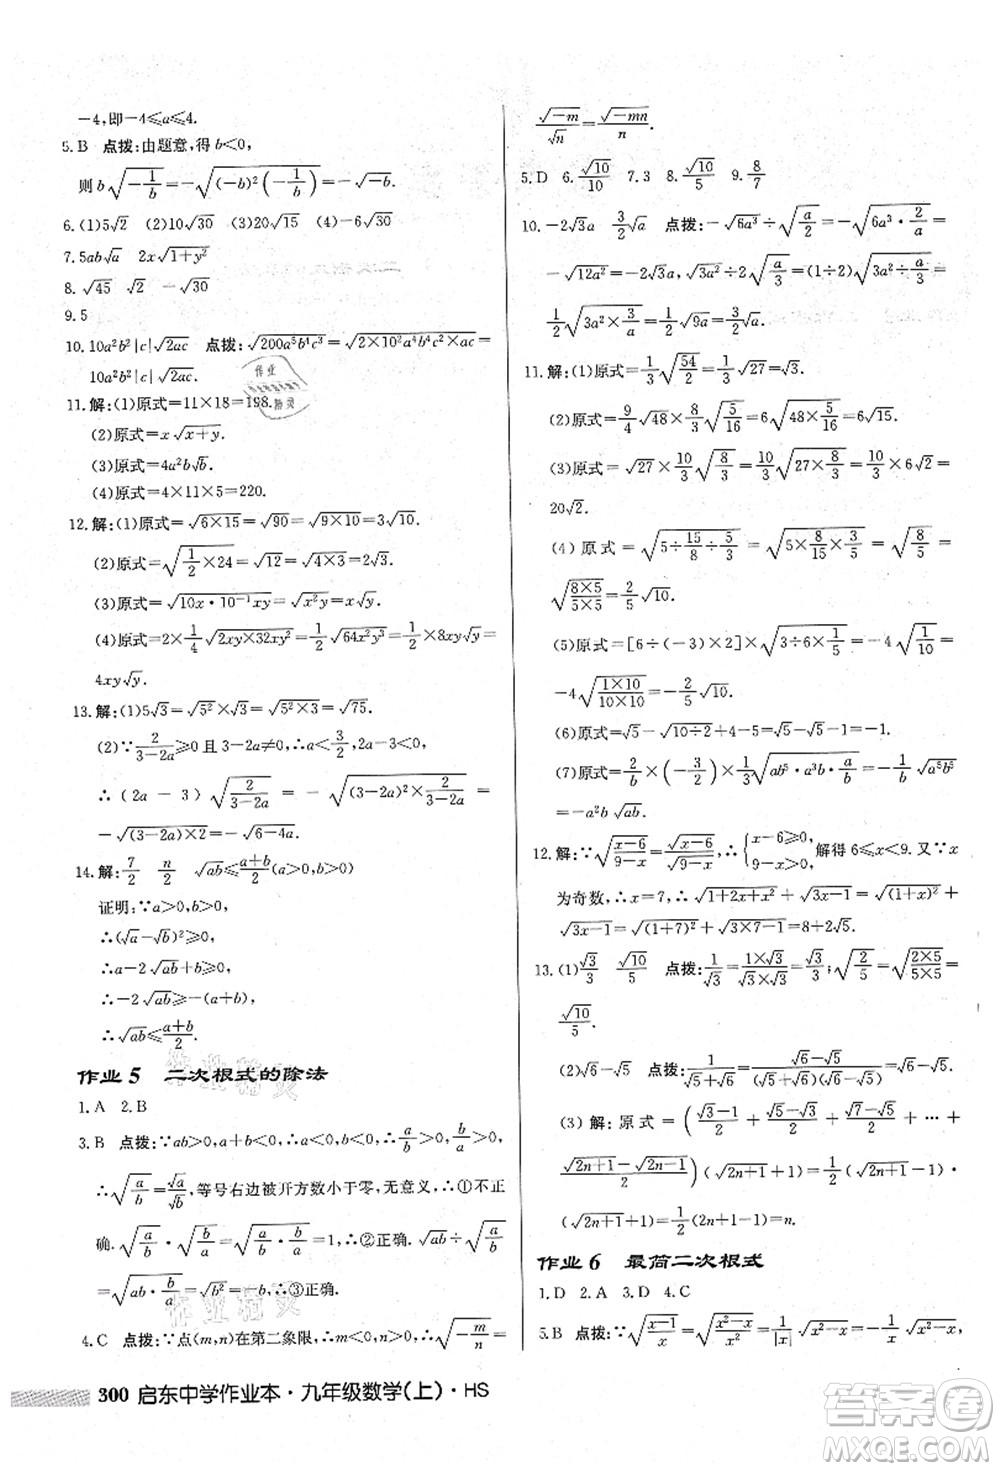 -4,即-4≤a≤4.
5.B 点拨:由题意,得 b<0,
则 b√(-1/b)=-√((-b)²(-1/b))=-√(-b).
6.(1)5√2 (2)10√30 (3)20√15 (4)-√30
7.5ab√a 2x√(1+y²)
8.√45 √2 -√30
9.5
10.10a²b²|c|√(2ac) 点拨:√(200a⁵b⁴c³)=√(2×10²a⁴b⁴c²×ac)=
10a²b²|c|√(2ac).
11.解:(1)原式=11×18=198.
(2)原式=x√(x+y).
(3)原式=4a²b√b.
(4)原式=4×11×5=220.
12.解:(1)原式=√(6×15)=√90=√(9×10)=3√10.
(2)原式=√(1/2×24)=√12=√(4×3)=2√3.
(3)原式=√(10x·10⁻¹xy)=√(x²y)=x√y.
(4)原式=2×1/4√(2xy×32xy²)=1/2√(64x²y³)=1/2×8xy√y=
4xy√y.
13.解:(1)5√3=√5²×√3=√(5²×3)=√75.
(2)∵2/(3-2a)≥0 且 3-2a≠0,∴a<3/2,
∴(2a-3)√(2/(3-2a))=-√((3-2a)²×2/(3-2a))=
-√((3-2a)×2)=-√(6-4a).
14.解:7/2 n/2 √(ab)≤(a+b)/2(a>0,b>0)
证明:∵a>0,b>0,
∴(√a-√b)²≥0,
∴a-2√(ab)+b≥0,
∴-2√(ab)≥-(a+b),
∴√(ab)≤(a+b)/2.
作业5 二次根式的除法
1.A 2.B
3.B 点拨:∵ab>0,a+b<0,∴a<0,b<0,∴a/b>0,b/a>0,
∴√(a/b)=√a/√b,等号右边被开方数小于零,无意义,∴①不正
确.√(a/b)·√(b/a)=√(a/b·b/a)=√1=1,∴②正确.√(ab)÷
√(a/b)=√(ab÷a/b)=√(ab×b/a)=√(b²)=-b,∴③正确.
4.C 点拨:∵点(m,n)在第二象限,∴m<0,n>0,∴√(-m/n)=
√(-m)/√n=√(-mn)/n.
5.D 6.√10/10 7.3 8.√10/5 9.8/7
10.-√3a 3/2√a 点拨:-√(6a³)÷√(a/2)=-√(6a³·2/a)=
-√(12a²)=-2√3a,√(3a²)÷2√(a/3)=(1÷2)√(3a²÷a/3)=
1/2√(3a²×3/a)=1/2√(9a)=3/2√a.
11.解:(1)原式=1/3√(54/2)=1/3√27=√3.
(2)原式=9/4√48×8/3√(5/16)=6√(48×5/16)=6√15.
(3)原式=√27×10/3√(8/3)×√5=10/3√(27×8/3×5)=10/3×6√10=
20√2.
(4)原式=√(5÷15/8÷5/3)=√(5×8/15×3/5)=√(8/5)=
√((8×5)/(5×5))=2/5√10.
(5)原式=[6÷(-3)×2]×√(3÷6×1/5)=-4√(1/10)=
-4√((1×10)/(10×10))=-2/5√10.
(6)原式=√5-(√5-2+2)+4-5=√5-√5-1=-1.
(7)原式=2/b×(-3/2)×1/3√(ab⁵·a³b·a/b)=-1/b√(a⁵b⁵)=
-a²b√(ab).
12.解:∵√((x-6)/(9-x))=√(x-6)/√(9-x),∴{x-6≥0, 9-x>0, 解得 6≤x<9.又∵x
为奇数,∴x=7,∴√(1+2x+x²)+√(3x-1)=√((1+x)²)+
√(3x-1)=√((1+7)²)+√(3×7-1)=8+2√5.
13.(1)√3/3 √10/5 点拨:1/√3=(1×√3)/(√3×√3)=√3/3;√(2/5)=√((2×5)/(5×5))=
√10/5.
(2)√6-√5 点拨:1/(√5+√6)=(√6-√5)/((√5+√6)(√6-√5))=√6-√5.
(3)解:原式=((√3-1)/2+(√5-√3)/2+…+
(√(2n+1)-√(2n-1))/2)(√(2n+1)+1)=1/2(√(2n+1)-1)·
(√(2n+1)+1)=1/2(2n+1-1)=n.
作业6 最简二次根式
1.D 2.A 3.D 4.C
5.B 点拨:∵√((x-1)/x)=√((x²-x)/x²)=1/|x|√(x²-x)=√(x²-x)/x,
300 启东中学作业本·九年级数学(上)·HS
答案圈
MXQE.COM